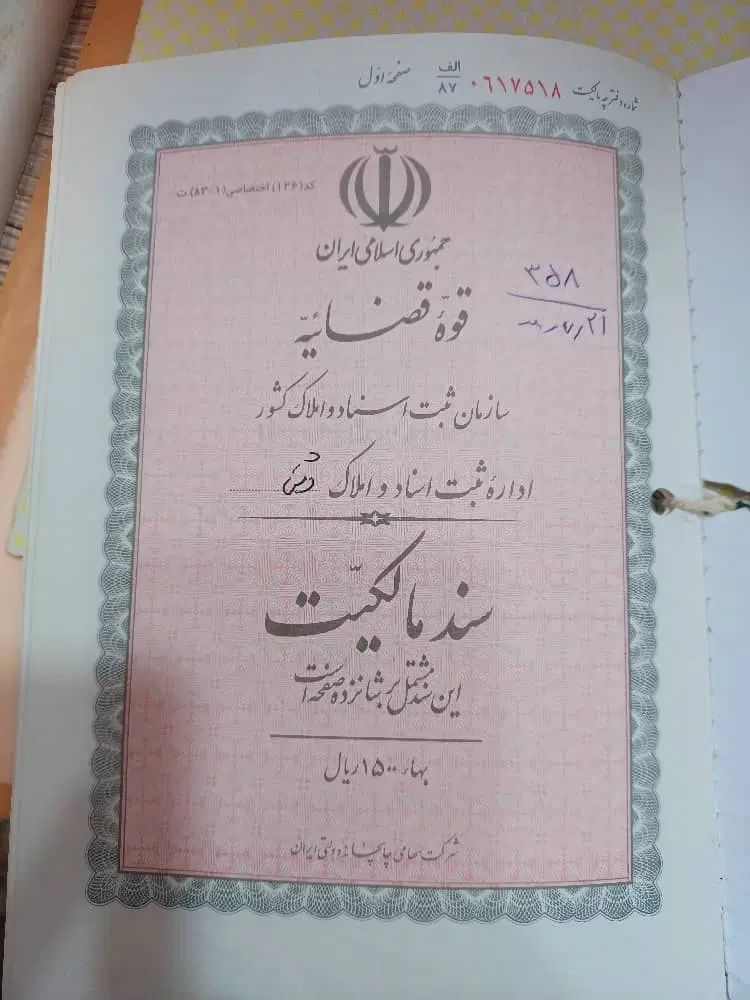 شماره دفترچه مالکیت ۰۶۱۷۵۱۸ الف/۸۷ صفحهٔ اول
کد(۱۲۶) اختصاصی(۸۳۰۱) ت
جمهوری اسلامی ایران
۳۵۸
قوهٔ قضائیّه
سازمان ثبت اسناد و املاک کشور
ادارهٔ ثبت اسناد و املاک
سند مالکیّت
این سند مشتمل بر شانزده صفحه است
بهاء ۱۵۰۰ ریال
شرکت سهامی چاپخانه دولتی ایران